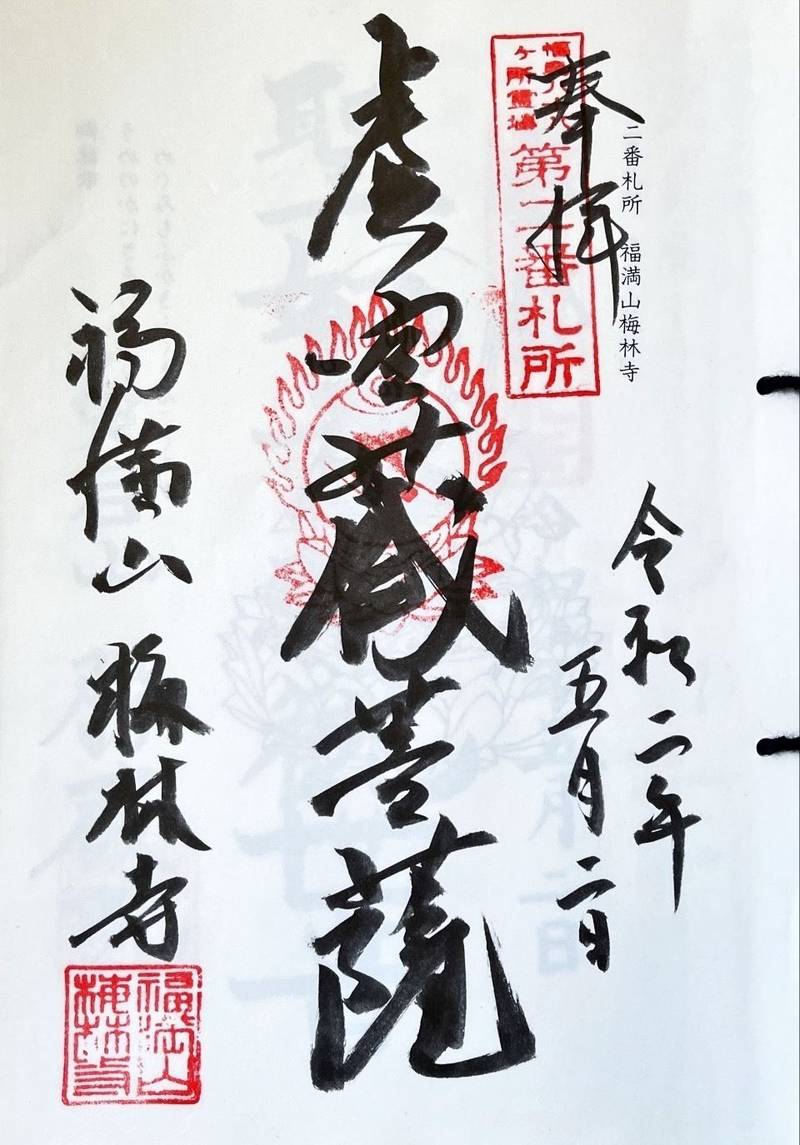 二番札所　福満山梅林寺
奉拝
ヶ所霊場
第二番札所
令和二年
五月二日
虚空蔵菩薩
福満山 梅林寺
福満山
梅林寺